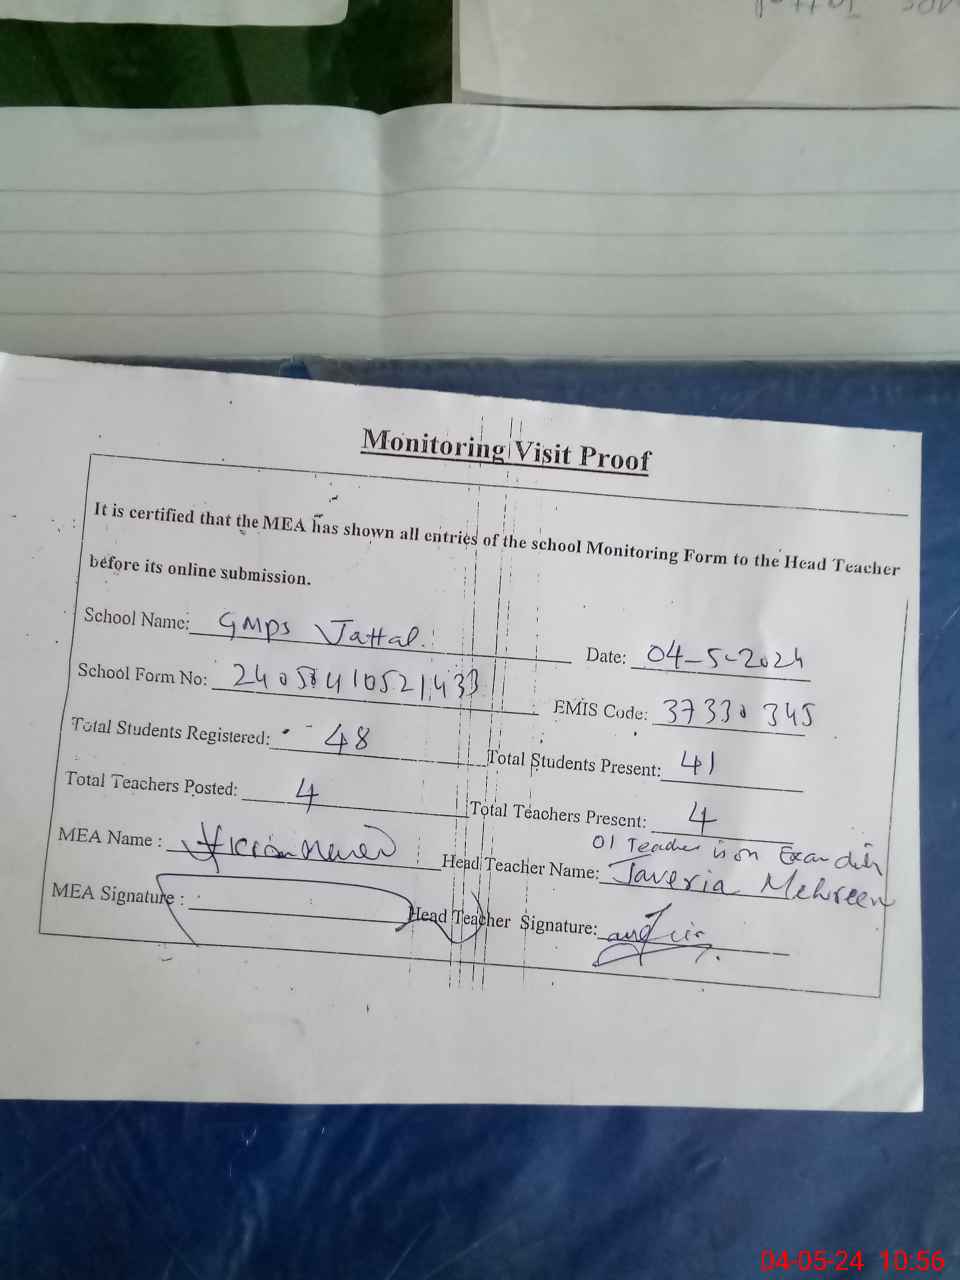 Monitoring Visit Proof
It is certified that the MEA has shown all entries of the school Monitoring Form to the Head Teacher
before its online submission.
School Name: GMPS Jattal.
Date: 04-5-2024
School Form No:
EMIS Code: 37330345
Total Students Registered: 48
Total Students Present: 41
Total Teachers Posted: 4
Total Teachers Present: 4
01 Teacher is on Exam
MEA Name :
Head Teacher Name: Javeria Mehreen
MEA Signature :
Head Teacher Signature:
04-05-24 10:56